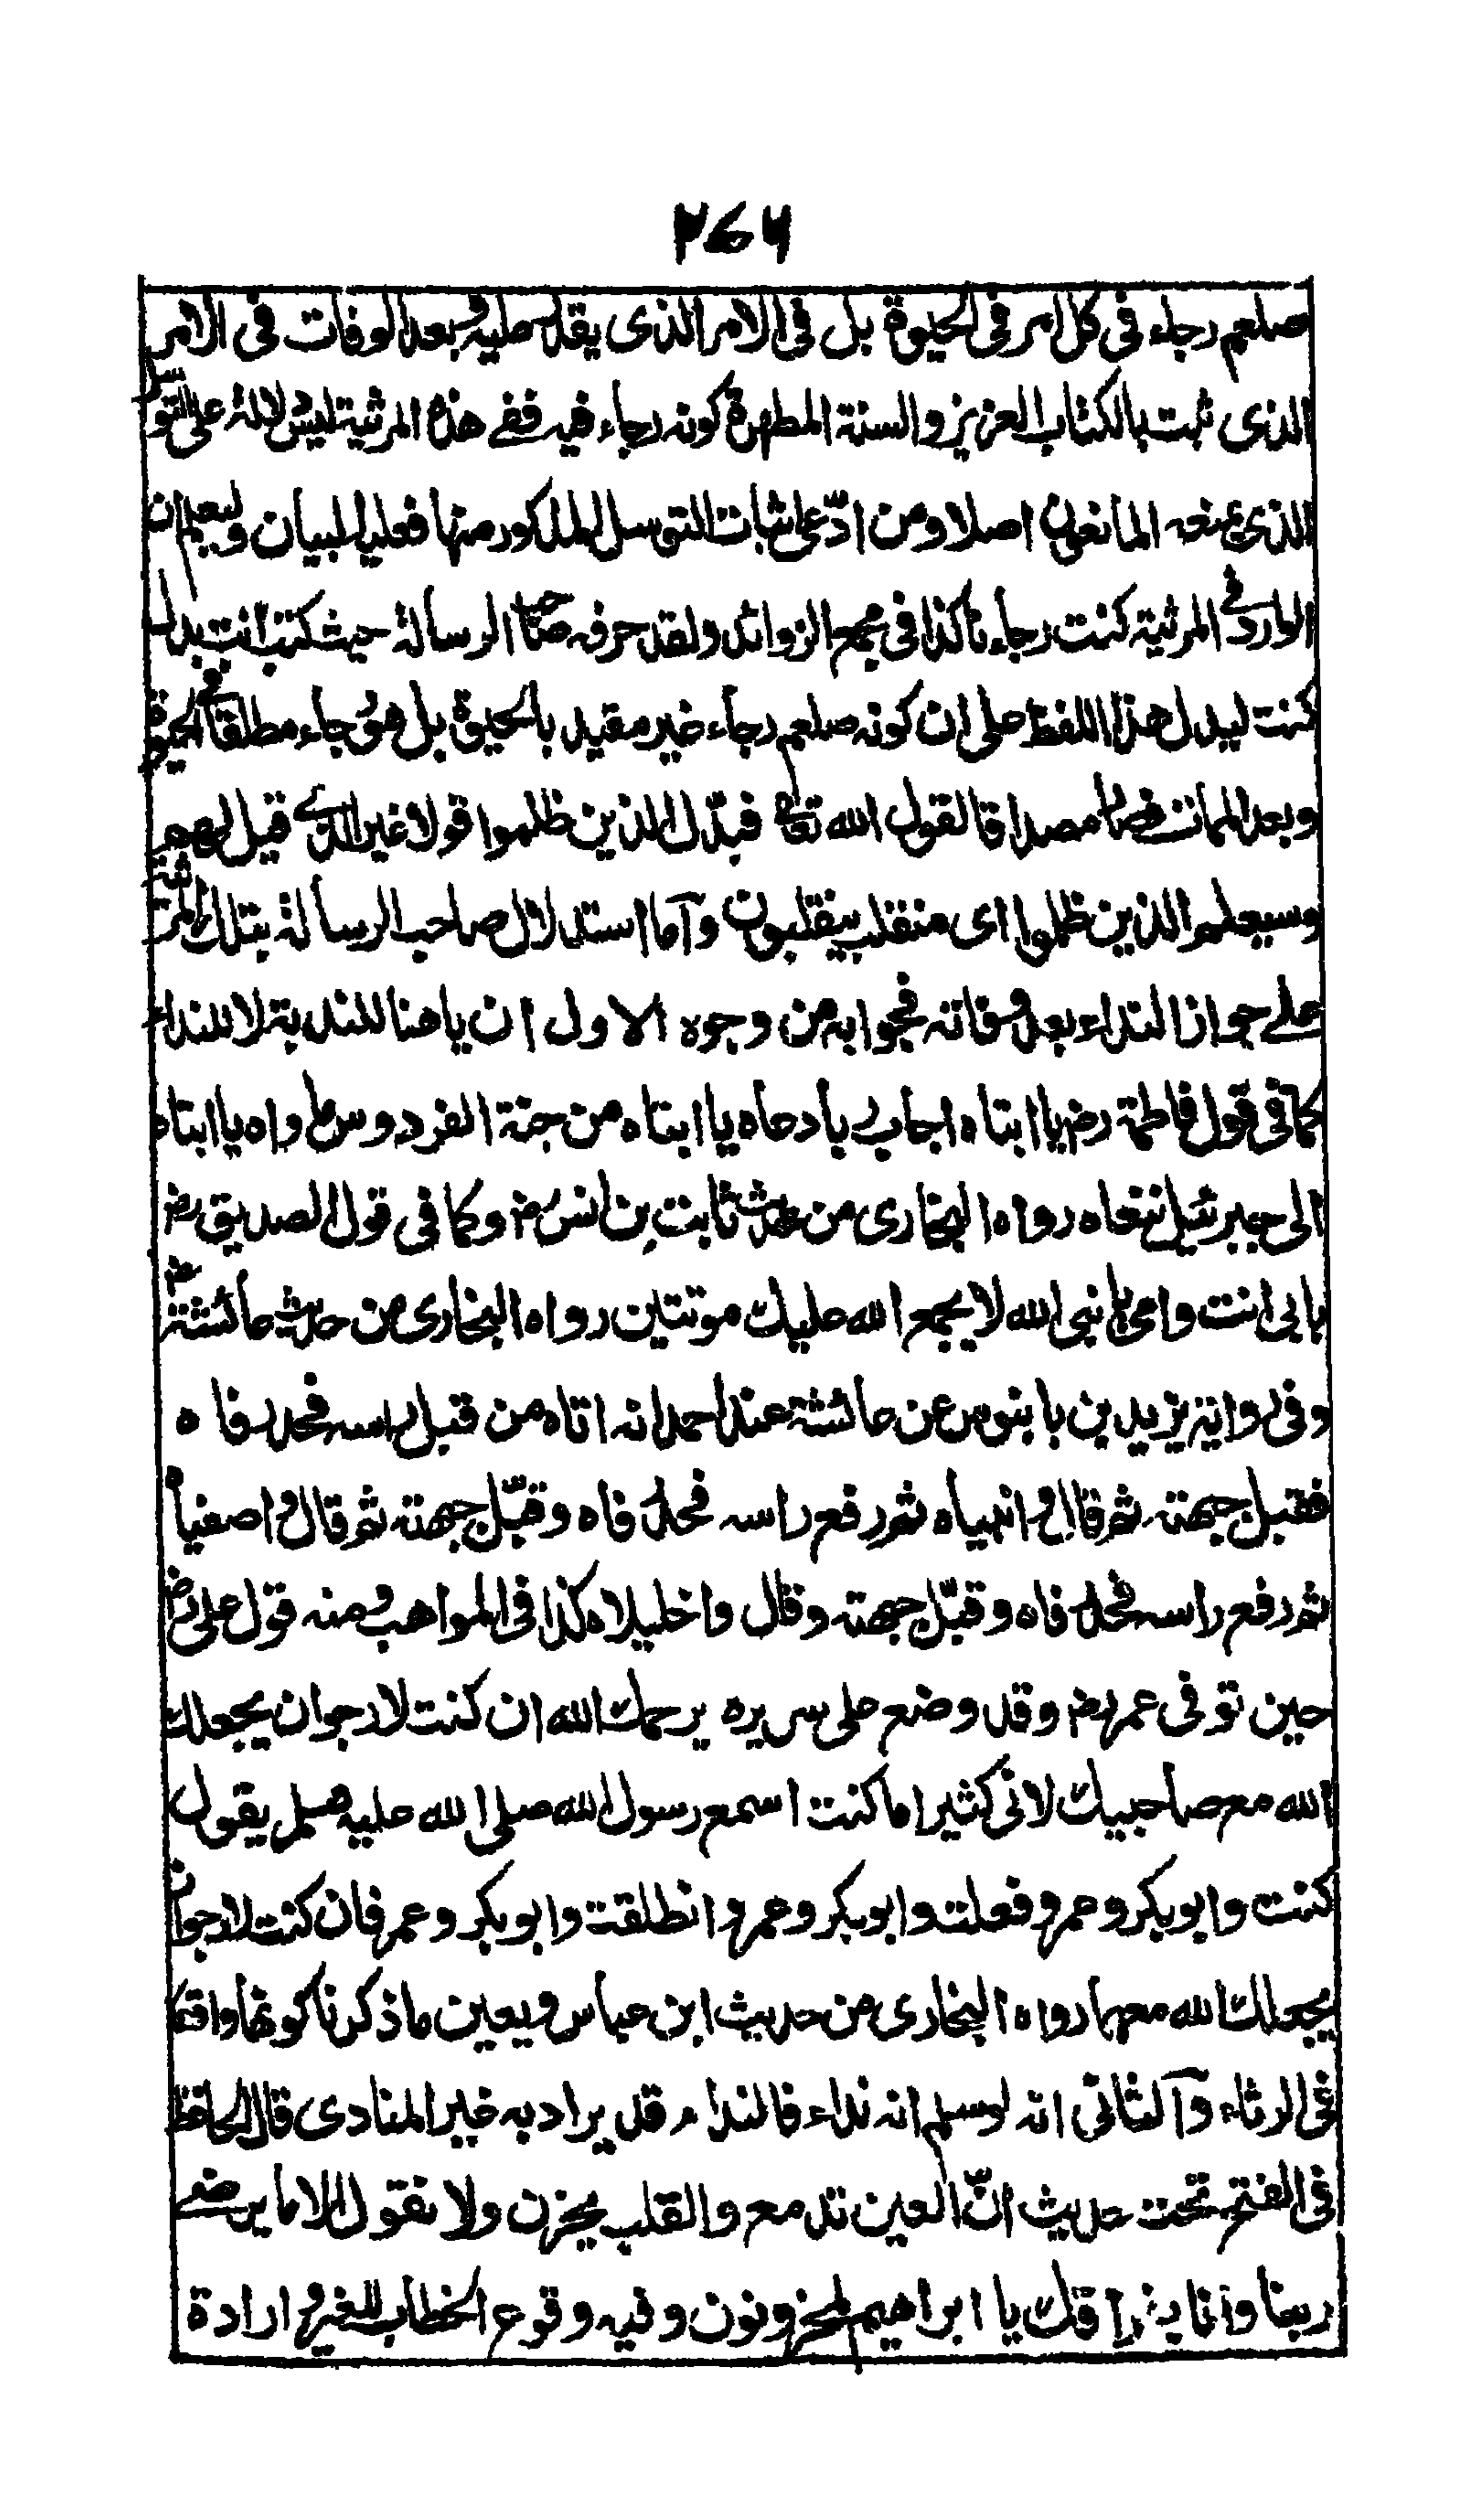 ٢٤٦
صلعم رجاء فى كل امر فى الحيوة بل فى الامر الذى يقدر عليه بعد الوفات فى الامر
الذى ثبت بالكتاب العزيز والسنة المطهرة كونه رجاء فيه ففى هذه المرثية ليس دلالة على التوسل
الذى منعه المانعون اصلا ومن ادّعى اثبات التوسل المذكور منها فعليه البيان وليعلم ان
الوارد فى المرثية كنت رجاءنا كذا فى مجمع الزوائد ولقد حرفه صاحب الرسالة حيث كتب انت بدل
كنت ليدل هذا اللفظ على ان كونه صلعم رجاء غير مقيد بالحيوة بل هو رجاء مطلقا فى الحيوة
وبعد الممات فصار مصداقا لقول الله تعالى فبدّل الذين ظلموا قولا غير الذى قيل لهم
وسيعلم الذين ظلموا اى منقلب ينقلبون وآما استدلال صاحب الرسالة بتلك المرثية
على جواز النداء بعد وفاته فجوابه من وجوه الاول ان يا هنا للندبة لا للنداء
كما فى قول فاطمة رض يا ابتاه اجاب يا دعاه يا ابتاه من جنة الفردوس ماواه يا ابتاه
الى جبرئيل ننعاه رواه البخارى من حديث ثابت بن انس رض وكما فى قول الصديق رض
بابى انت وامى يا نبى الله لا يجمع الله عليك موتتين رواه البخارى من حديث عائشة رض
وفى رواية يزيد بن بابنوس عن عائشة عند احمد انه اتاه من قبل راسه فحدر فاه
فقبل جبهته ثم قال وانبياه ثم رفع راسه فحدر فاه وقبّل جبهته ثم قال واصفياه
ثم رفع راسه فحدر فاه وقبّل جبهته وقال واخليلاه كذا فى المواهب ومنه قول على رض
حين توفى عمر رض وقد وضع على سريره يرحمك الله ان كنت لارجو ان يجعلك
الله مع صاحبيك لانى كثيرا ما كنت اسمع رسول الله صلى الله عليه وسلم يقول
كنت وابوبكر وعمر وفعلت وابوبكر وعمر وانطلقت وابوبكر وعمر فان كنت لارجو ان
يجعلك الله معهما رواه البخارى من حديث ابن عباس ويعين ما ذكرنا كونها واقعة
فى الرثاء وآلثانى انه لو سلم انه نداء فالنداء قد يراد به غير المنادى قال الحافظ
فى الفتح تحت حديث انّ العين تدمع والقلب يحزن ولا نقول الا ما يرضى
ربنا وانا بفراقك يا ابراهيم لمحزونون وفيه وقوع الخطاب للغير وارادة